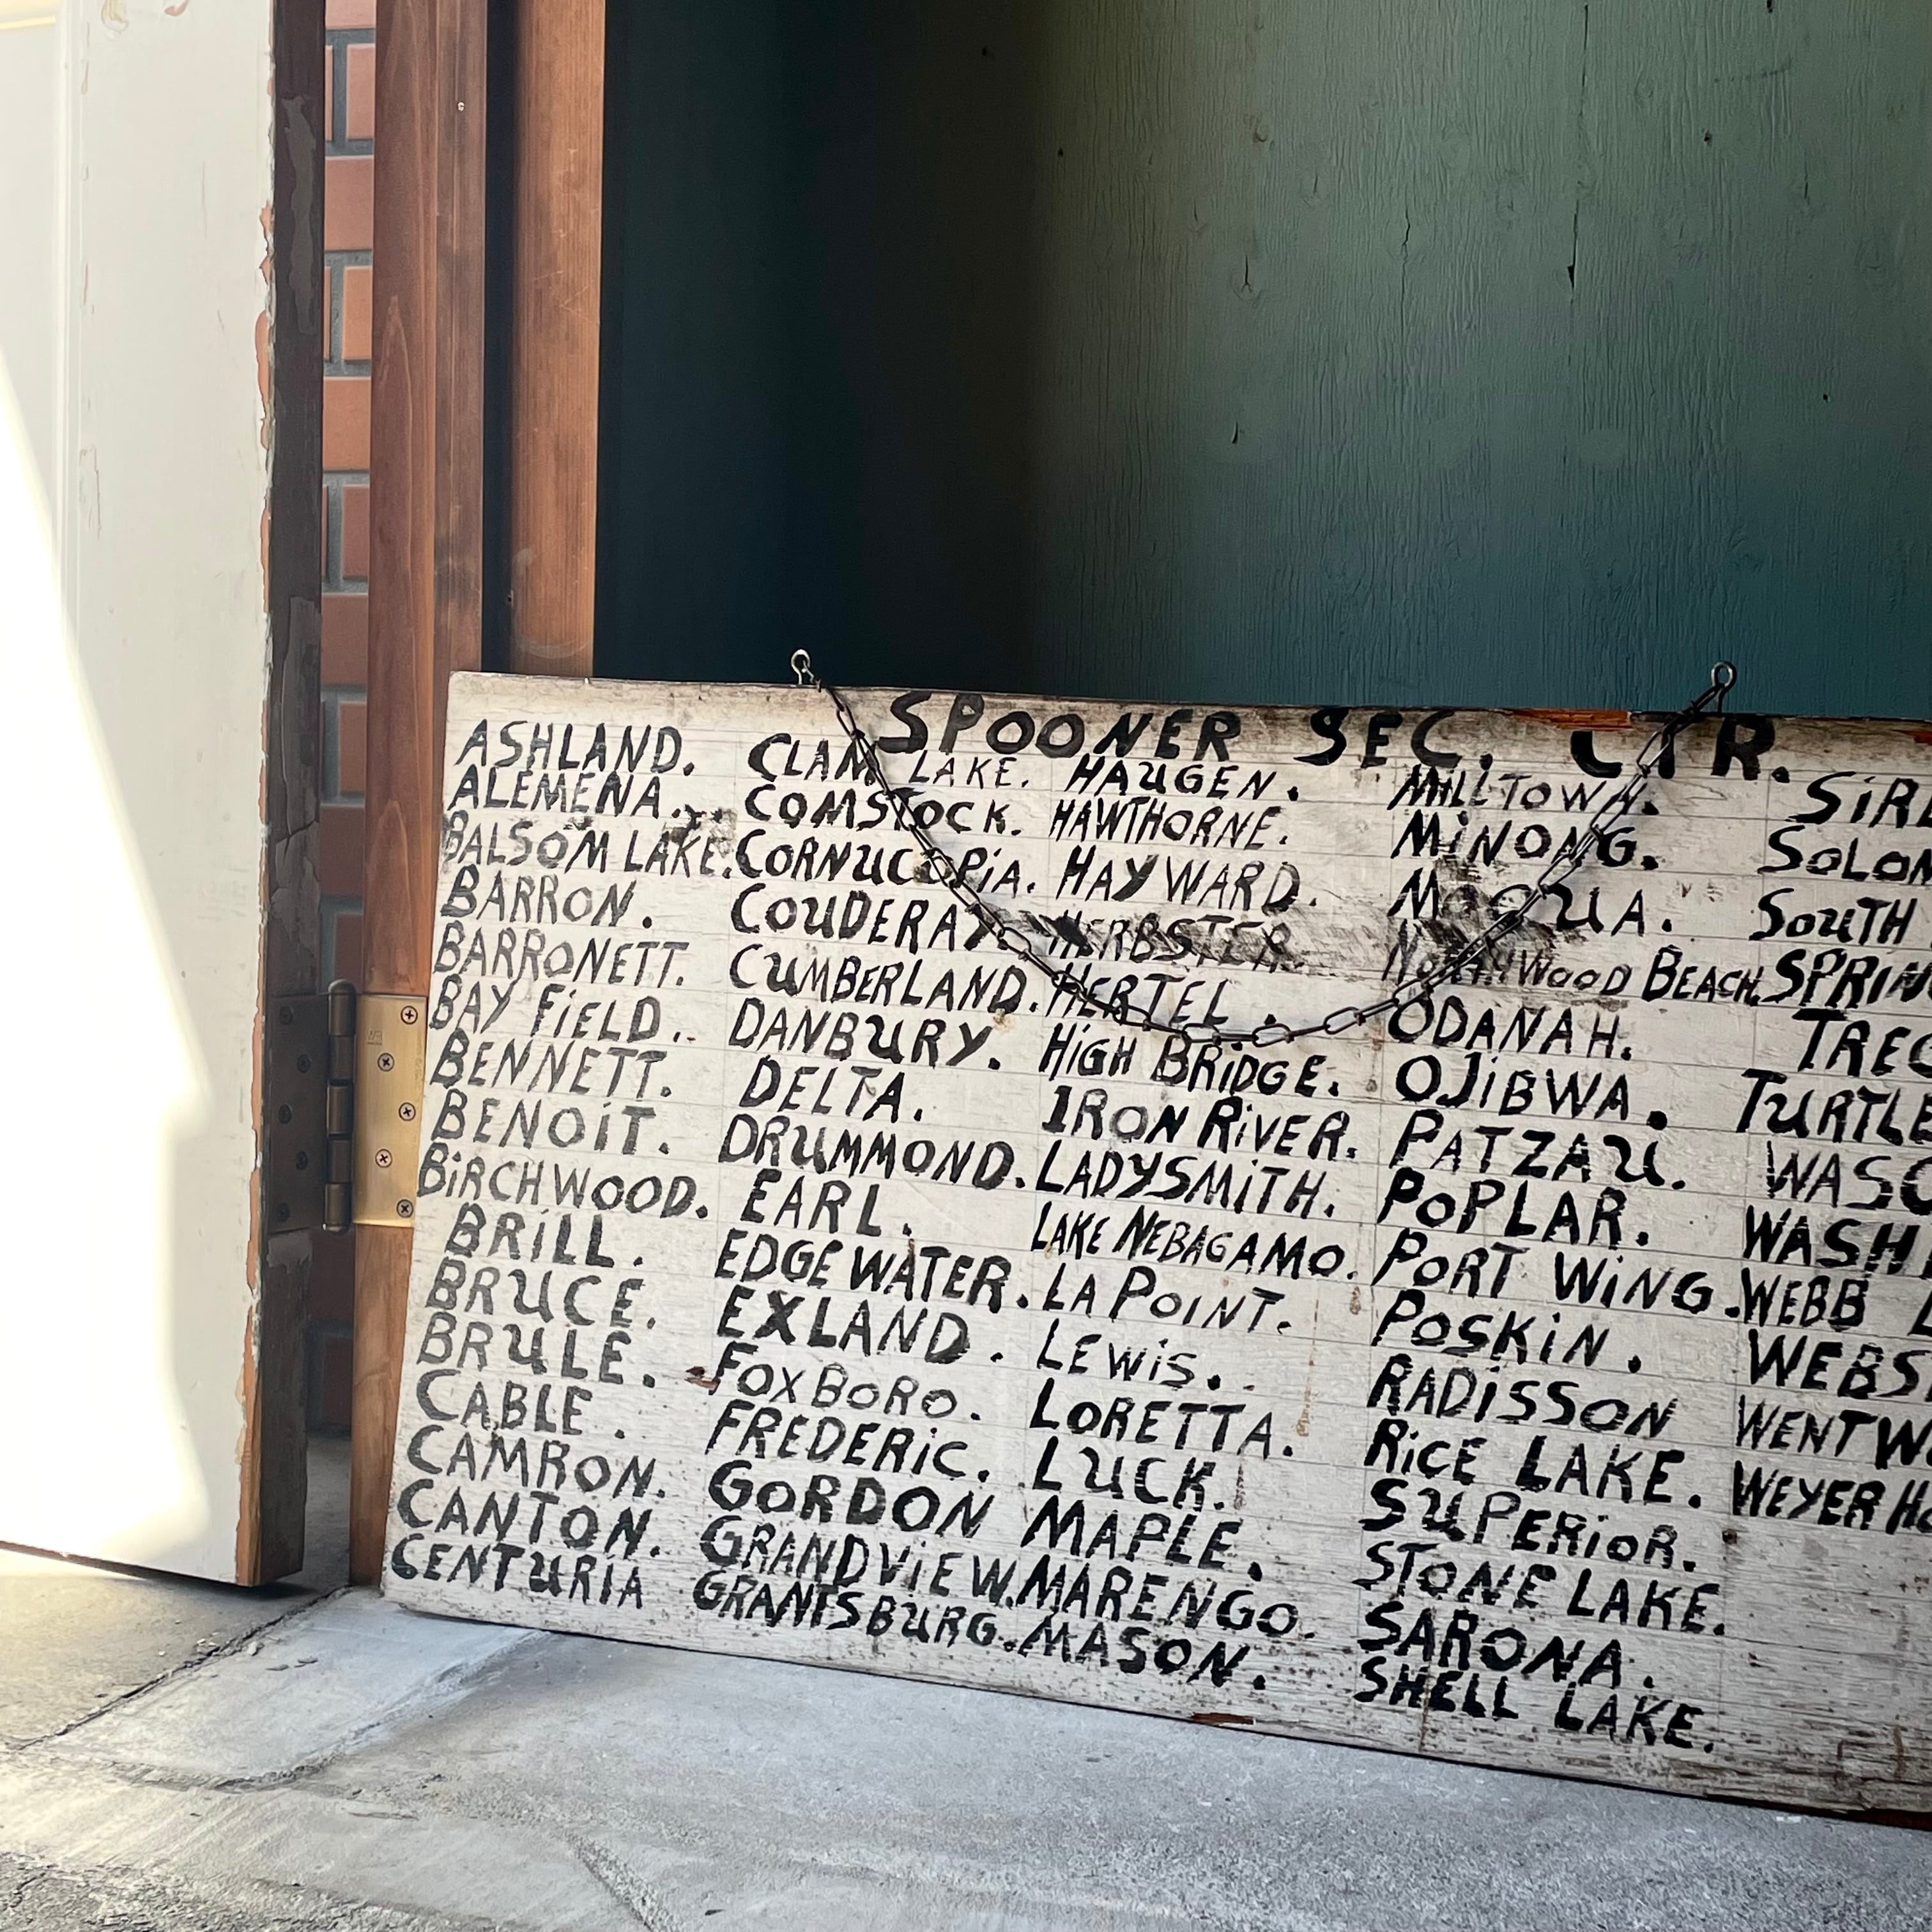 SPOONER SEC. CTR.
ASHLAND.
ALEMENA.
BALSOM LAKE.
BARRON.
BARRONETT.
BAY FiELD.
BENNETT.
BENOiT.
BiRCHWOOD.
BRiLL.
BRUCE.
BRULE.
CABLE.
CAMRON.
CANTON.
CENTURiA
CLAM LAKE.
COMSTOCK.
CORNUCOPiA.
COUDERAY.
CUMBERLAND.
DANBURY.
DELTA.
DRUMMOND.
EARL.
EDGEWATER.
EXLAND.
FOXBORO.
FREDERiC.
GORDON
GRANDViEW.
GRANTSBURG.
HAUGEN.
HAWTHORNE.
HAYWARD.
HERBSTER.
HERTEL.
HiGH BRiDGE.
IRON RiVER.
LADYSMiTH.
LAKE NEBAGAMO.
LA POINT.
LEWiS.
LORETTA.
LUCK.
MAPLE.
MARENGO.
MASON.
MiLLTOWN.
MiNONG.
MOQUA.
NORTHWOOD BEACH.
ODANAH.
OJiBWA.
PATZAU.
POPLAR.
PORT WiNG.
POSKiN.
RADiSSON
RiCE LAKE.
SUPERiOR.
STONE LAKE.
SARONA.
SHELL LAKE.
SiRE
SOLON
SOUTH
SPRiN
TREG
TURTLE
WASC
WASH
WEBB L
WEBS
WENTW
WEYERH